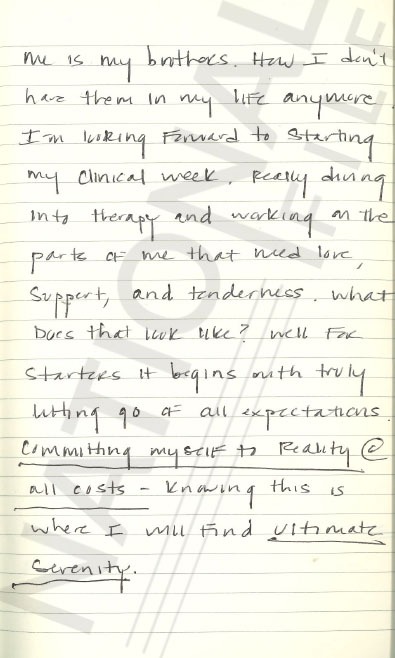 me is my brothers. How I don't
have them in my life anymore.
I'm looking forward to starting
my clinical week. Really diving
into therapy and working on the
parts of me that need love,
support, and tenderness. What
does that look like? Well for
starters it begins with truly
letting go of all expectations.
Committing myself to Reality @
all costs - Knowing this is
where I will find ultimate
serenity.
NATIONAL
FILE